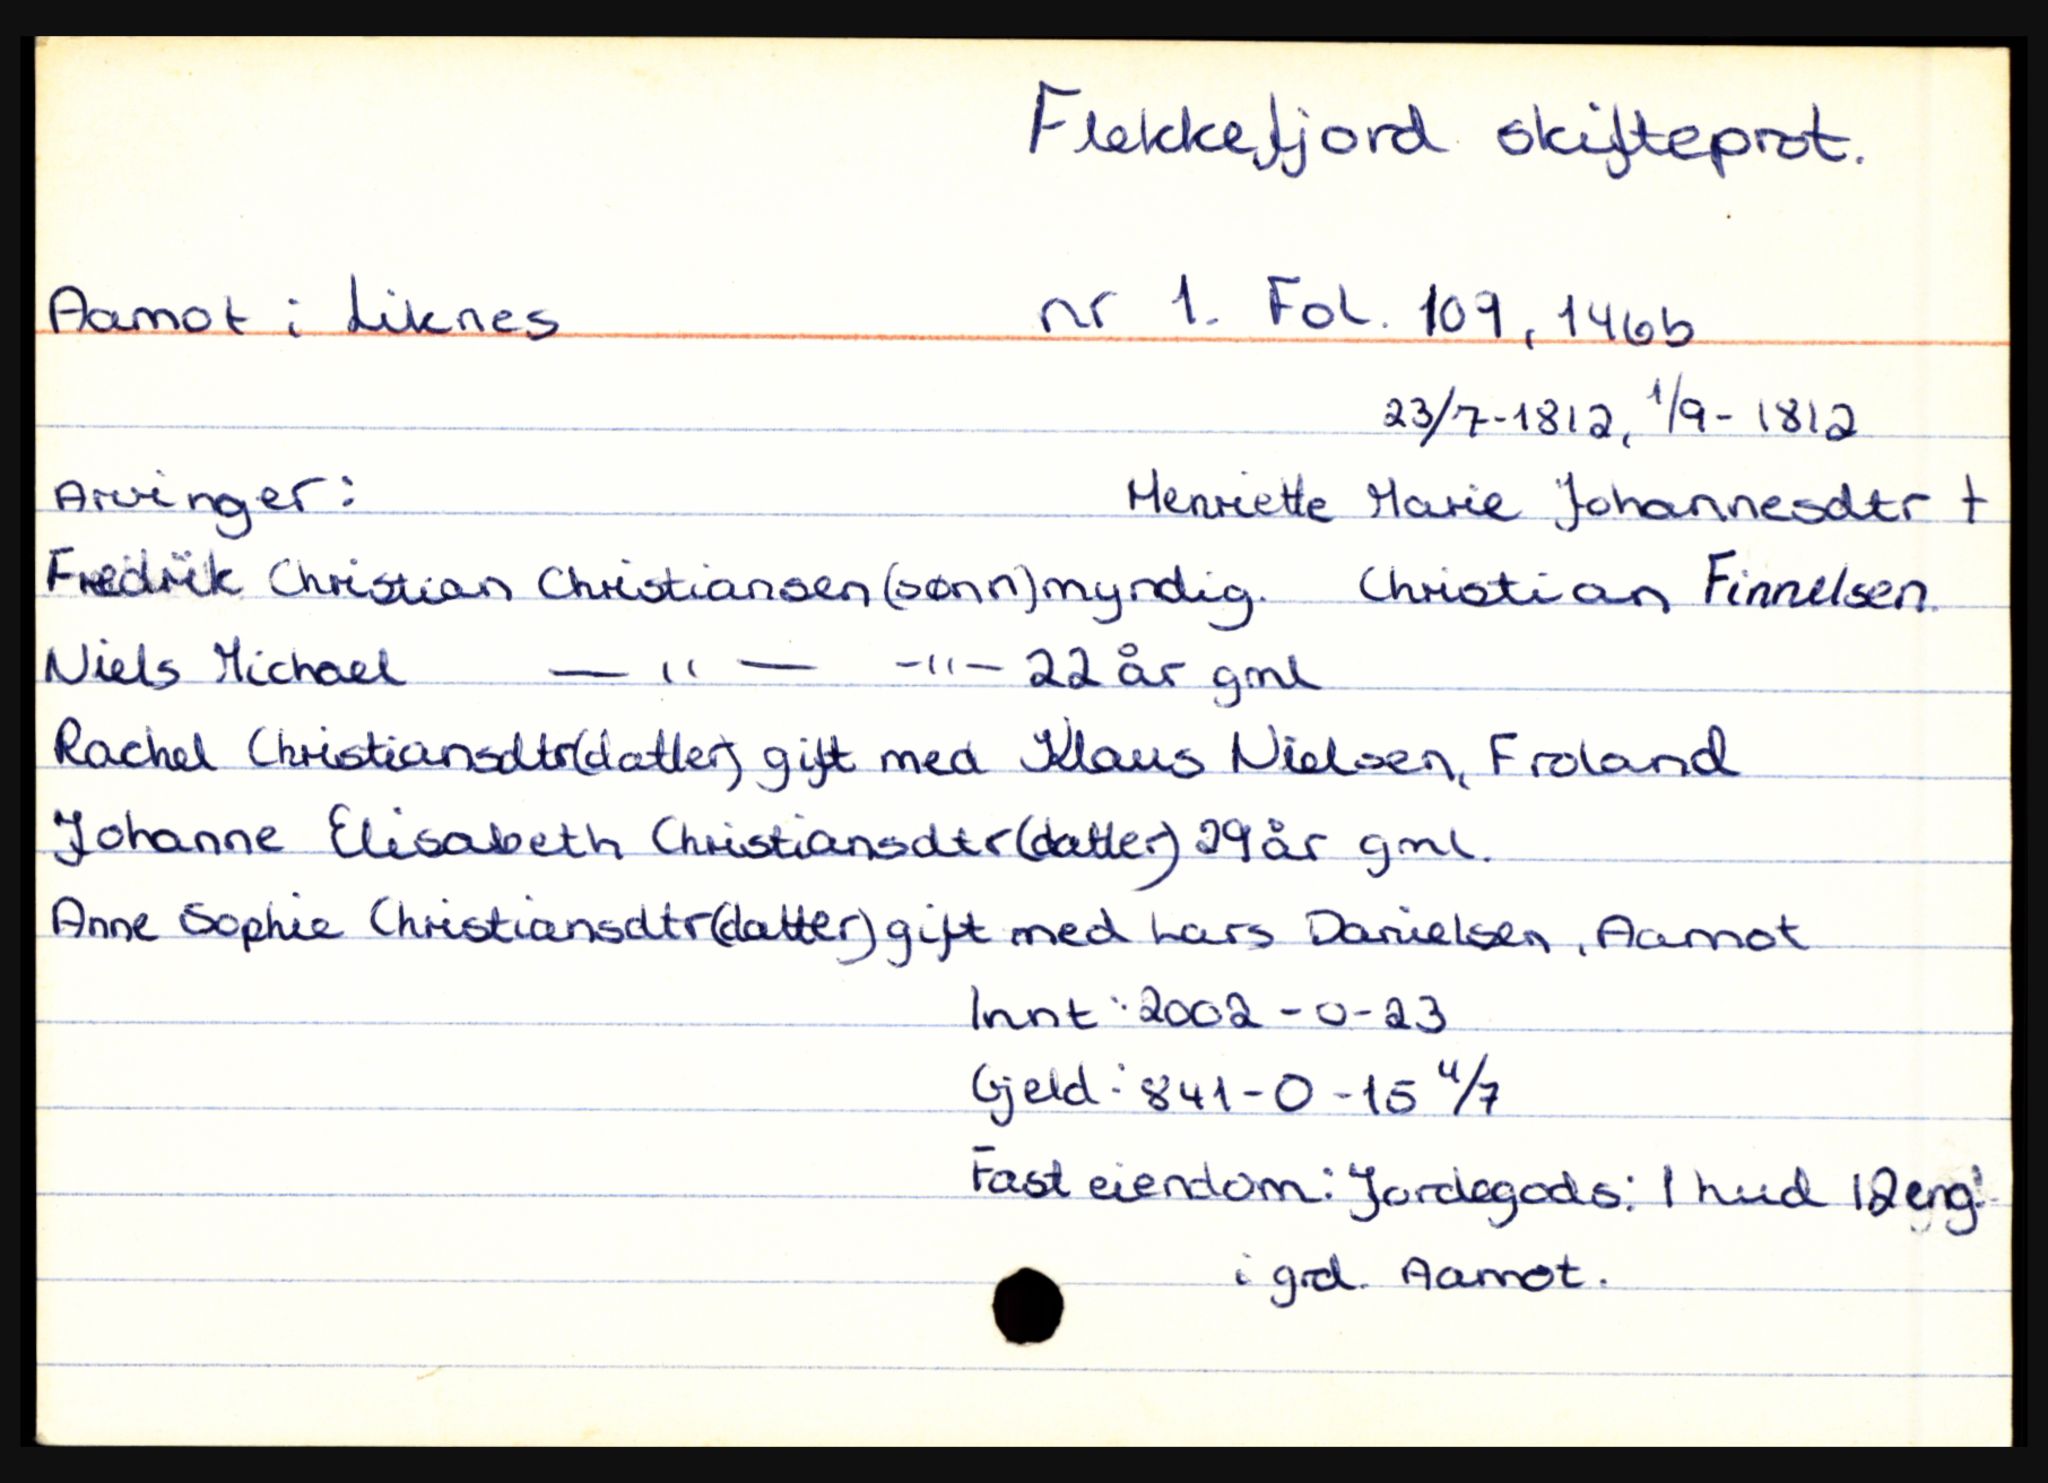 Flekkefjord skifteprot.
Aamot i Liknes nr 1. Fol. 109, 146b
23/7-1812, 1/9-1812
Arvinger: Henriette Marie Johannesdtr †
Fredrik Christian Christiansen (sønn) myndig. Christian Finnelsen.
Niels Michael — " — -"- 22 år gml
Rachel Christiansdtr (datter) gift med Klaus Nielsen, Froland
Johanne Elisabeth Christiansdtr (datter) 29 år gml.
Anne Sophie Christiansdtr (datter) gift med Lars Danielsen, Aamot
Innt: 2002-0-23
Gjeld: 841-0-15 4/7
Fast eiendom: Jordegods: 1 hud 12 eng.
i grd. Aamot.